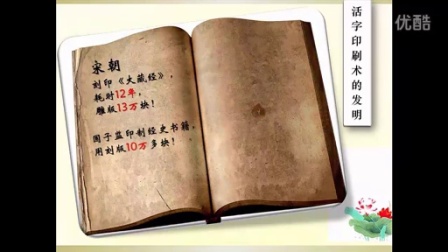 优酷
活字印刷术的发明
宋朝
刻印《大藏经》，
耗时12年，
雕版13万块！
国子监印制经史书籍，
用刻版10万多块！